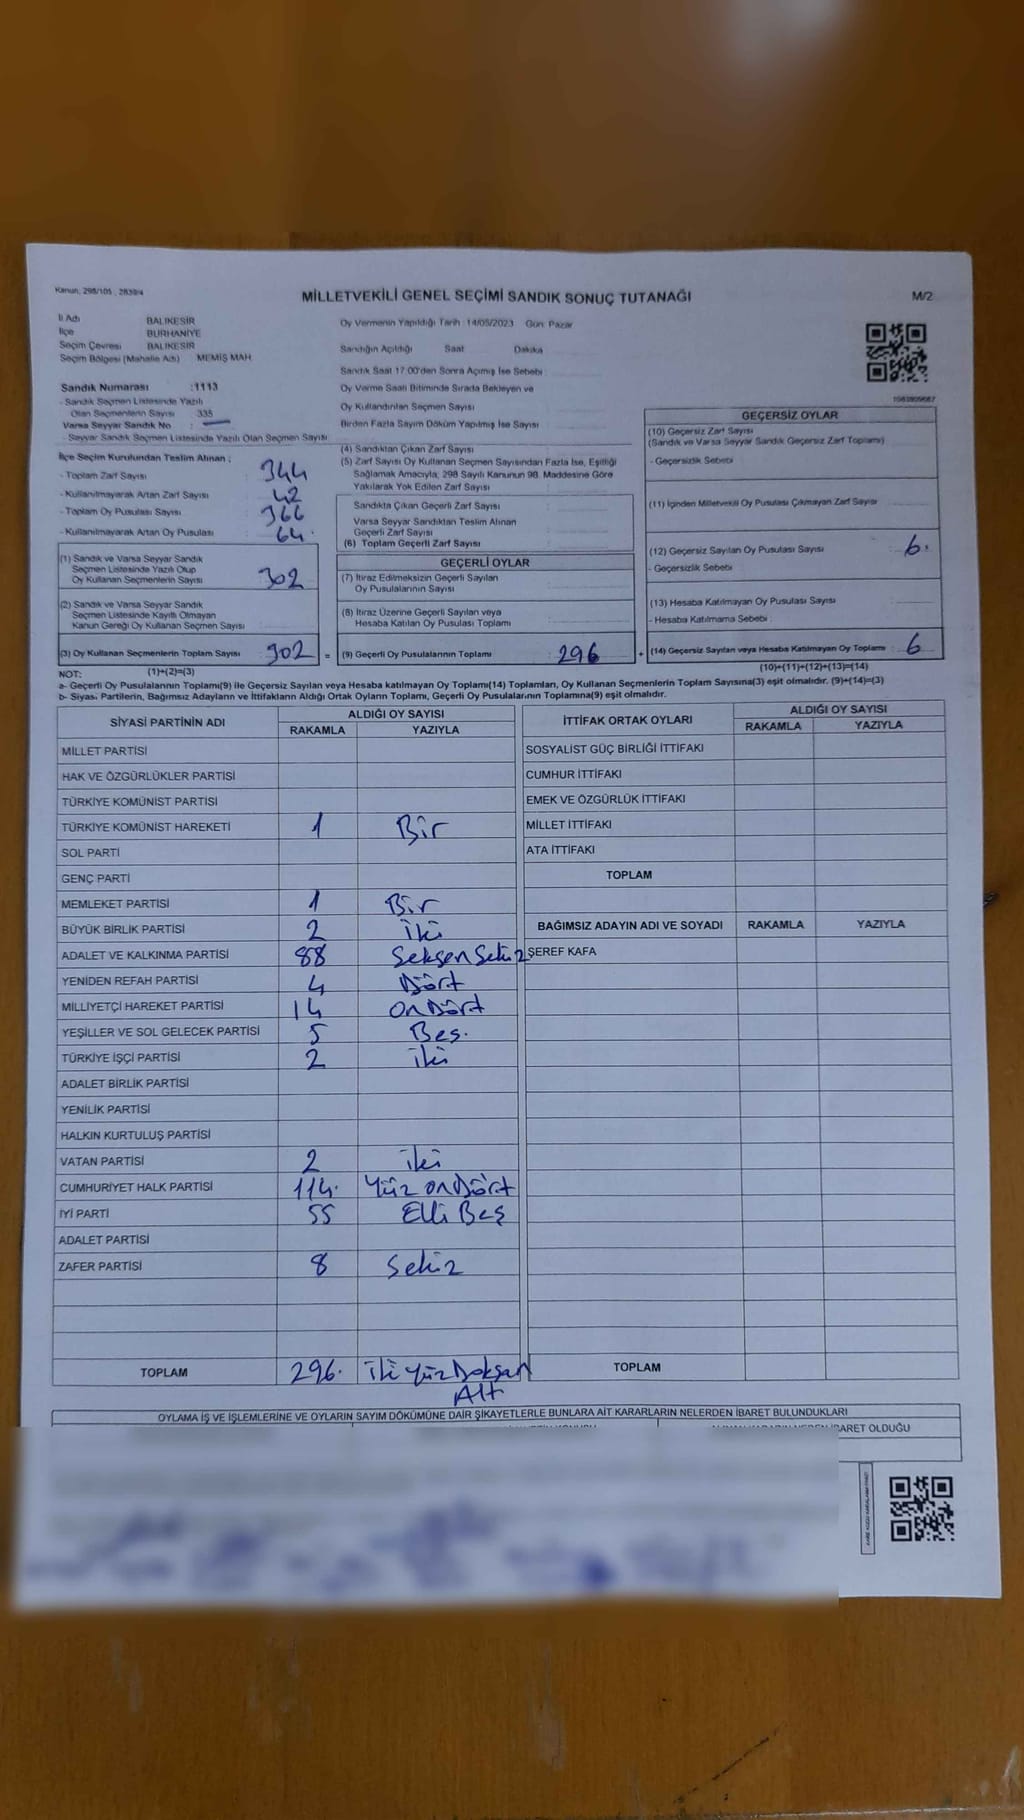 Kanun, 298/105 , 2839/4
MİLLETVEKİLİ GENEL SEÇİMİ SANDIK SONUÇ TUTANAĞI
M/2
İl Adı BALIKESİR
İlçe BURHANİYE
Seçim Çevresi BALIKESİR
Seçim Bölgesi (Mahalle Adı) MEMİŞ MAH
Sandık Numarası :1113
- Sandık Seçmen Listesinde Yazılı
Olan Seçmenlerin Sayısı 335
Varsa Seyyar Sandık No :
- Seyyar Sandık Seçmen Listesinde Yazılı Olan Seçmen Sayısı
İlçe Seçim Kurulundan Teslim Alınan ;
- Toplam Zarf Sayısı : 344
- Kullanılmayarak Artan Zarf Sayısı : 42
- Toplam Oy Pusulası Sayısı : 366
- Kullanılmayarak Artan Oy Pusulası : 64.
(1) Sandık ve Varsa Seyyar Sandık
Seçmen Listesinde Yazılı Olup
Oy Kullanan Seçmenlerin Sayısı : 302
(2) Sandık ve Varsa Seyyar Sandık
Seçmen Listesinde Kayıtlı Olmayan
Kanun Gereği Oy Kullanan Seçmen Sayısı :
(3) Oy Kullanan Seçmenlerin Toplam Sayısı : 302 =
Oy Vermenin Yapıldığı Tarih :14/05/2023 Gün: Pazar
Sandığın Açıldığı Saat Dakika
Sandık Saat 17:00'den Sonra Açımış İse Sebebi :
Oy Verme Saati Bitiminde Sırada Bekleyen ve
Oy Kullandırılan Seçmen Sayısı
Birden Fazla Sayım Döküm Yapılmış İse Sayısı
(4) Sandıktan Çıkan Zarf Sayısı :
(5) Zarf Sayısı Oy Kullanan Seçmen Sayısından Fazla İse, Eşitliği
Sağlamak Amacıyla; 298 Sayılı Kanunun 98. Maddesine Göre
Yakılarak Yok Edilen Zarf Sayısı :
Sandıkta Çıkan Geçerli Zarf Sayısı :
Varsa Seyyar Sandıktan Teslim Alınan
Geçerli Zarf Sayısı :
(6) Toplam Geçerli Zarf Sayısı :
GEÇERLİ OYLAR
(7) İtiraz Edilmeksizin Geçerli Sayılan
Oy Pusulalarının Sayısı :
(8) İtiraz Üzerine Geçerli Sayılan veya
Hesaba Katılan Oy Pusulası Toplamı :
(9) Geçerli Oy Pusulalarının Toplamı : 296 +
1083909087
GEÇERSİZ OYLAR
(10) Geçersiz Zarf Sayısı
(Sandık ve Varsa Seyyar Sandık Geçersiz Zarf Toplamı)
- Geçersizlik Sebebi
(11) İçinden Milletvekili Oy Pusulası Çıkmayan Zarf Sayısı
(12) Geçersiz Sayılan Oy Pusulası Sayısı : 6.
- Geçersizlik Sebebi :
(13) Hesaba Katılmayan Oy Pusulası Sayısı :
- Hesaba Katılmama Sebebi :
(14) Geçersiz Sayılan veya Hesaba Katılmayan Oy Toplamı : 6
NOT: (1)+(2)=(3) (10)+(11)+(12)+(13)=(14)
a- Geçerli Oy Pusulalarının Toplamı(9) ile Geçersiz Sayılan veya Hesaba Katılmayan Oy Toplamı(14) Toplamları, Oy Kullanan Seçmenlerin Toplam Sayısına(3) eşit olmalıdır. (9)+(14)=(3)
b- Siyasi Partilerin, Bağımsız Adayların ve İttifakların Aldığı Ortak Oyların Toplamı, Geçerli Oy Pusulalarının Toplamına(9) eşit olmalıdır.
SİYASİ PARTİNİN ADI ALDIĞI OY SAYISI
RAKAMLA YAZIYLA
MİLLET PARTİSİ
HAK VE ÖZGÜRLÜKLER PARTİSİ
TÜRKİYE KOMÜNİST PARTİSİ
TÜRKİYE KOMÜNİST HAREKETİ 1 Bir
SOL PARTİ
GENÇ PARTİ
MEMLEKET PARTİSİ 1 Bir
BÜYÜK BİRLİK PARTİSİ 2 iki
ADALET VE KALKINMA PARTİSİ 88 Seksen Sekiz
YENİDEN REFAH PARTİSİ 4 Dört
MİLLİYETÇİ HAREKET PARTİSİ 14 On Dört
YEŞİLLER VE SOL GELECEK PARTİSİ 5 Beş.
TÜRKİYE İŞÇİ PARTİSİ 2 iki
ADALET BİRLİK PARTİSİ
YENİLİK PARTİSİ
HALKIN KURTULUŞ PARTİSİ
VATAN PARTİSİ 2 iki
CUMHURİYET HALK PARTİSİ 114. Yüz on Dört
İYİ PARTİ 55 Elli Beş
ADALET PARTİSİ
ZAFER PARTİSİ 8 Sekiz
TOPLAM 296. iki Yüz Doksan
Altı
İTTİFAK ORTAK OYLARI ALDIĞI OY SAYISI
RAKAMLA YAZIYLA
SOSYALİST GÜÇ BİRLİĞİ İTTİFAKI
CUMHUR İTTİFAKI
EMEK VE ÖZGÜRLÜK İTTİFAKI
MİLLET İTTİFAKI
ATA İTTİFAKI
TOPLAM
BAĞIMSIZ ADAYIN ADI VE SOYADI RAKAMLA YAZIYLA
ŞEREF KAFA
TOPLAM
OYLAMA İŞ VE İŞLEMLERİNE VE OYLARIN SAYIM DÖKÜMÜNE DAİR ŞİKAYETLERLE BUNLARA AİT KARARLARIN NELERDEN İBARET BULUNDUKLARI
İBARET OLDUĞU